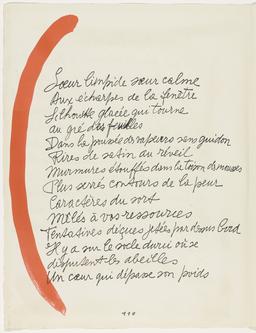 Sœur limpide sœur calme
Aux écharpes de la fenêtre
Silhouette glacée qui tourne
au gré des feuilles
Dans la poussée des vapeurs sens guidon
Rires de satin au réveil
Murmures étouffés dans la toison de mousses
Plus serrés contours de la peur
Caractères du sort
Mêlés à vos ressources
Tentatives déçues jetées par dessus bord
Il y a sur le socle durci où se
disputent les abeilles
Un cœur qui dépasse son poids
110